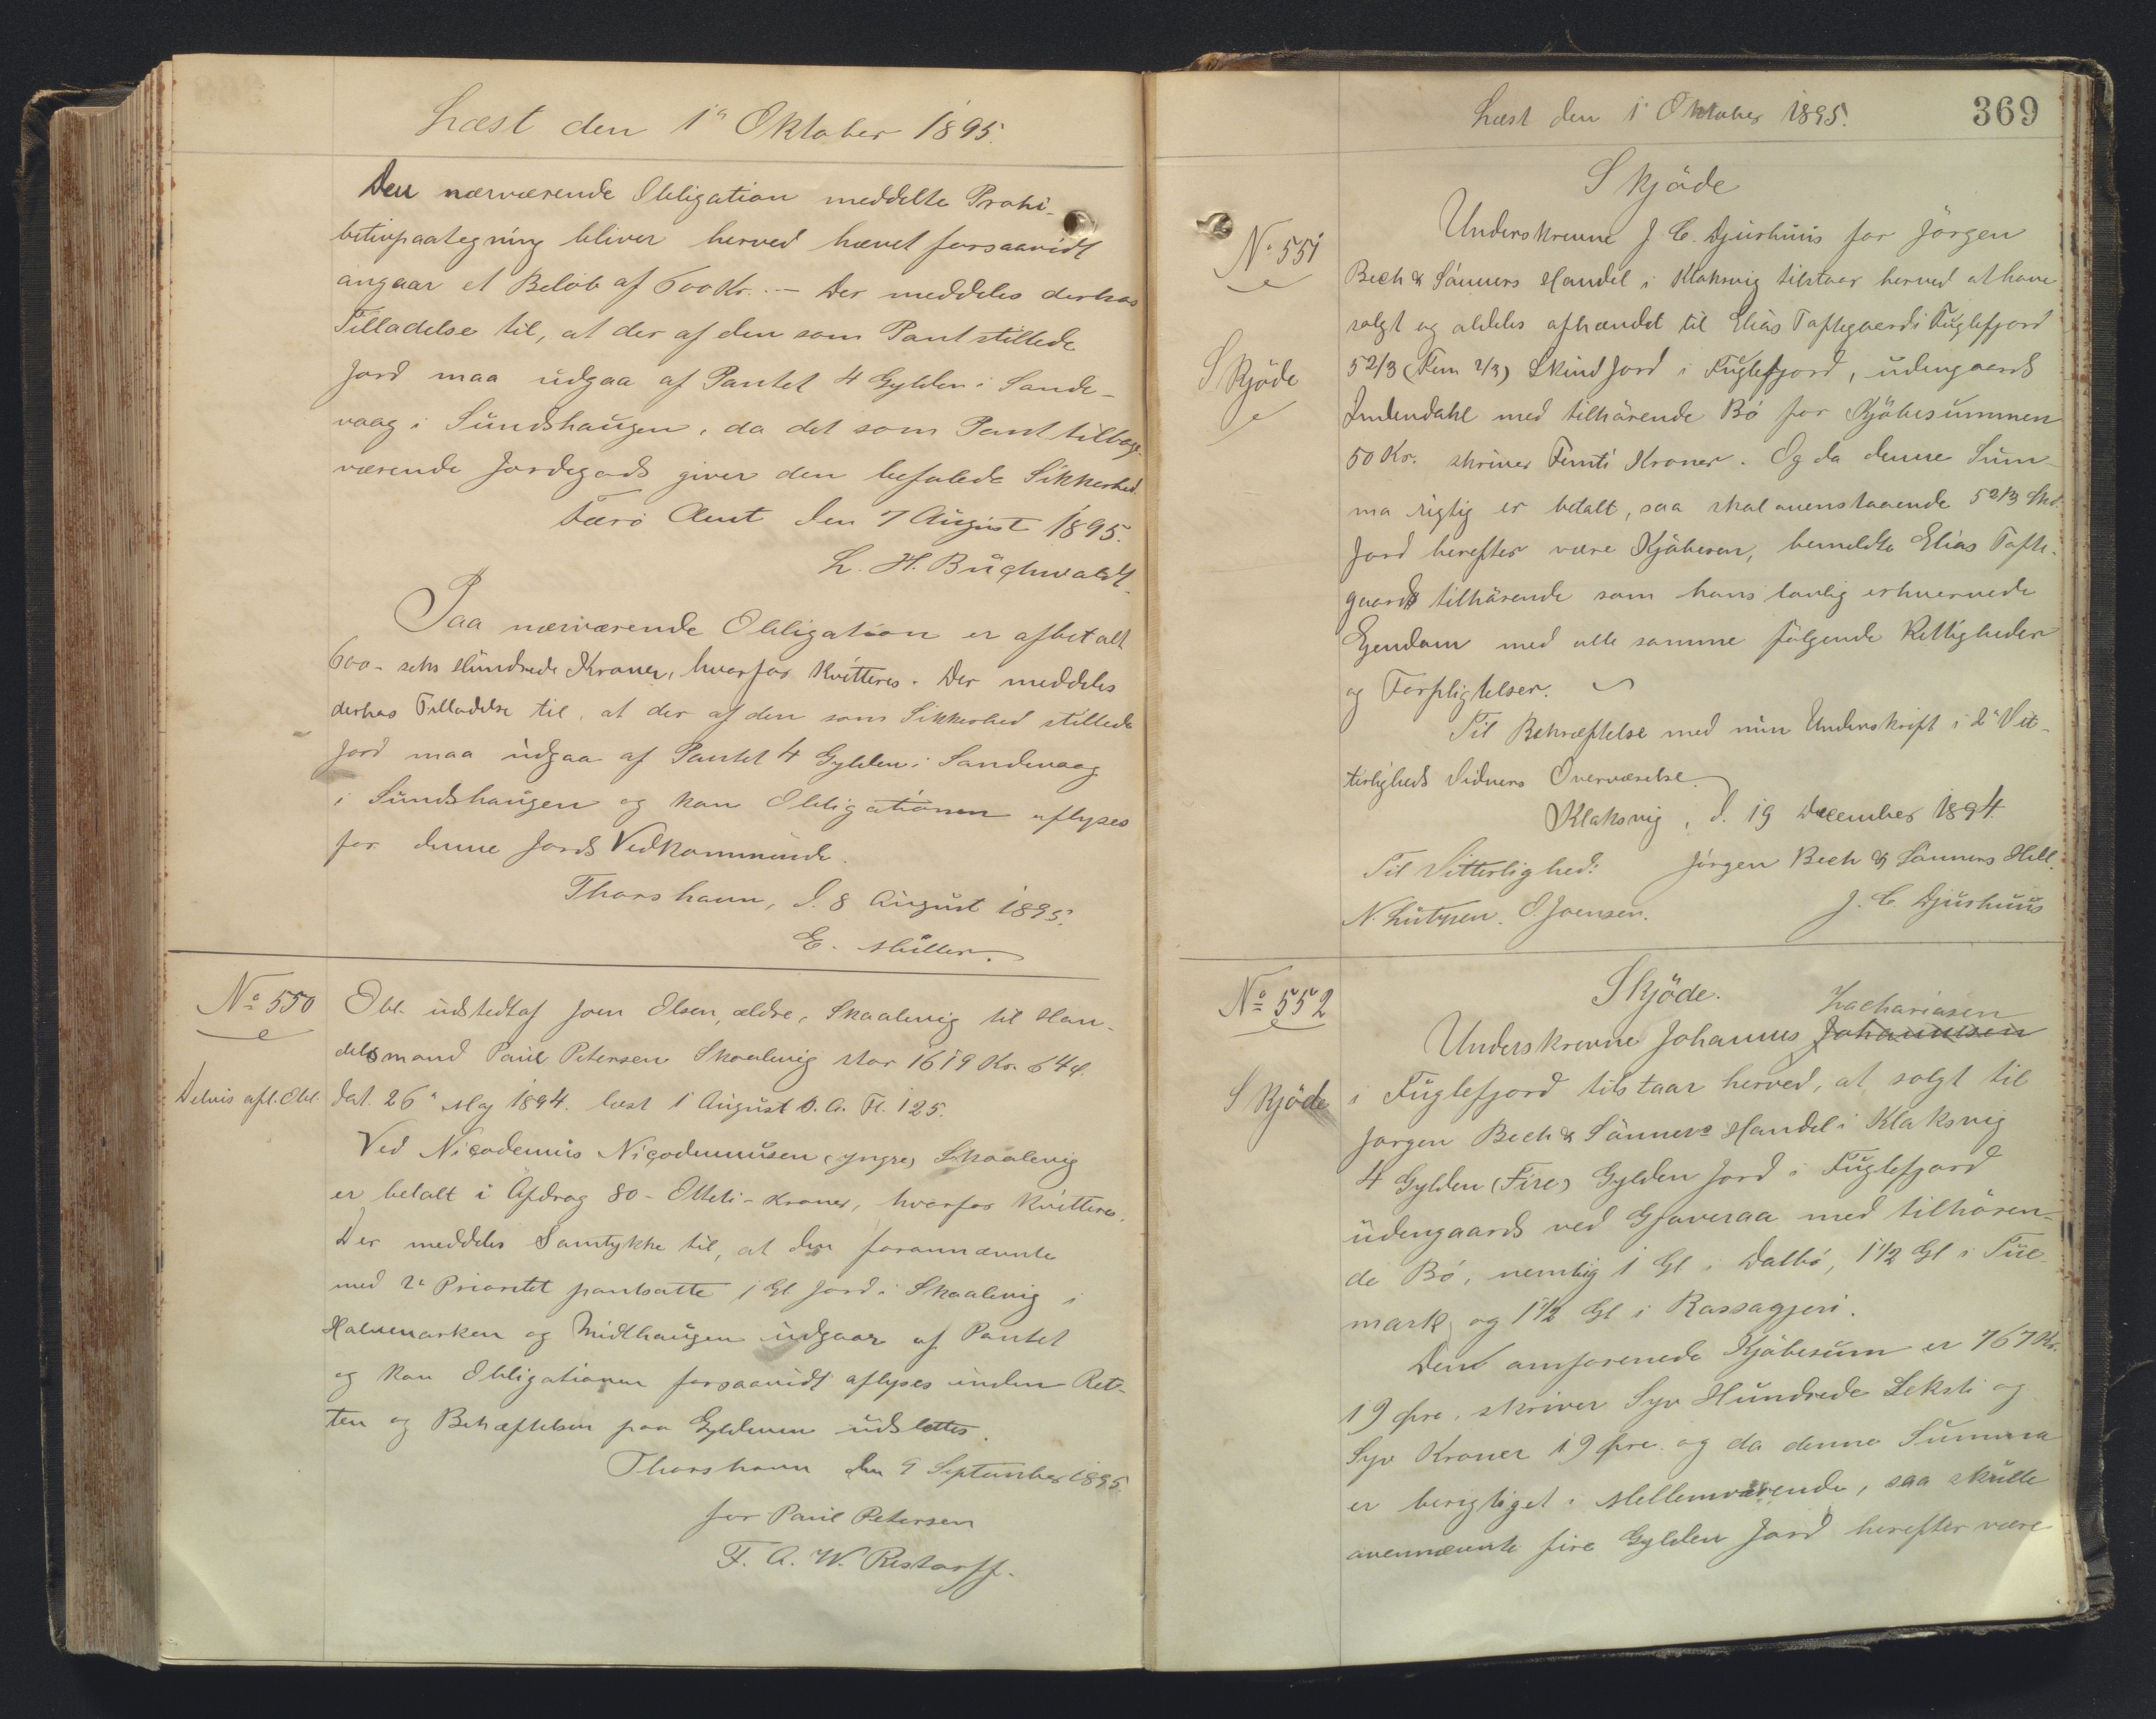 Læst den 1ª Oktober 1895.
Den nærværende Obligation meddelte Prohi-
bitivpaategning bliver herved hævet forsaavidt
angaar et Beløb af 600 Kr. — Der meddeles derhos
Tilladelse til, at der af den som Pant stillede
Jord maa udgaa af Pantet 4 Gylden i Sande-
vaag i Sundshaugen, da det som Pant tilbage-
værende Jordegods giver den befalede Sikkerhed.
Færö Amt den 7 August 1895.
L. H. Buchwaldt.
Paa nærværende Obligation er afbetalt
600 - seks Hundrede Kroner, hvorfor kvitteres. Der meddeles
derhos Tilladelse til, at der af den som Sikkerhed stillede
Jord maa udgaa af Pantet 4 Gylden i Sandevaag
i Sundshaugen og kan Obligationen aflyses
for denne Jords Vedkommende.
Thorshavn, d. 8 August 1895.
E. Müller.
No 550
Delvis afl. Obl.
Obl. udstedt af Joen Olsen, ældre, Skaalevig til Han-
delsmand Paul Petersen Skaalevig stor 1619 Kr. 64 Ø.
dat. 26ª Maj 1894. læst 1 August s. A. Fl. 125.
Ved Nicodemus Nicodemusen (yngre) Skaalevig
er betalt i Afdrag 80 - Otteti - Kroner, hvorfor kvitteres.
Der meddeles Samtykke til, at den forannævnte
med 2ª Prioritet pantsatte 1 Gl Jord i Skaalevig i
Halvemarken og Midthaugen udgaar af Pantet
og kan Obligationen forsaavidt aflyses inden Ret-
ten og Behæftelsen paa Gyldenen udslettes.
Thorshavn den 9 September 1895.
for Paul Petersen
F. A. W. Restorff.
Læst den 1ª Oktober 1895.
369
No 551
Skjöde
Skjöde
Underskrevne J. C. Djurhuus for Jörgen
Bech & Sönners Handel i Klaksvig tilstaar herved at have
solgt og aldeles afhændet til Elias Toftegaard i Fuglefjord
5 2/3 (Fem 2/3) Skind Jord i Fuglefjord, udengaards
Indendahl med tilhörende Bö for Kjöbesummen
50 Kr. skriver Femti Kroner. Og da denne Sum-
ma rigtig er betalt, saa skal ovenstaaende 5 2/3 Skd.
Jord herefter være Kjöberen, bemeldte Elias Tofte-
gaards tilhörende som hans lovlig erhvervede
Ejendom med alle samme fölgende Rettigheder
og Forpligtelser.
Til Bekræftelse med min Underskrift i 2ª Vit-
terligheds Vidners Overværelse.
Klaksvig, d. 19 December 1894.
Til Vitterlighed: Jörgen Bech & Sönners Hdl.
N. Lützen. O. Joensen. J. C. Djurhuus
No 552
Skjöde
Skjöde.
Zachariasen
Underskrevne Johannes Johannesen
i Fuglefjord tilstaar herved, at solgt til
Jörgen Bech & Sönners Handel i Klaksvig
4 Gylden (Fire) Gylden Jord i Fuglefjord
udengaards ved Gjoveraa med tilhören-
de Bö, nemlig 1 Gl. i Dalbö, 1 1/2 Gl i Tue-
mark og 1 1/2 Gl i Rassagjeri.
Den omforenede Kjöbesum er 767 Kr.
19 Øre, skriver Syv Hundrede Seksti og
Syv Kroner 19 Øre og da denne Summa
er berigtiget i Mellemværende, saa skulle
ovennævnte fire Gylden Jord herefter være